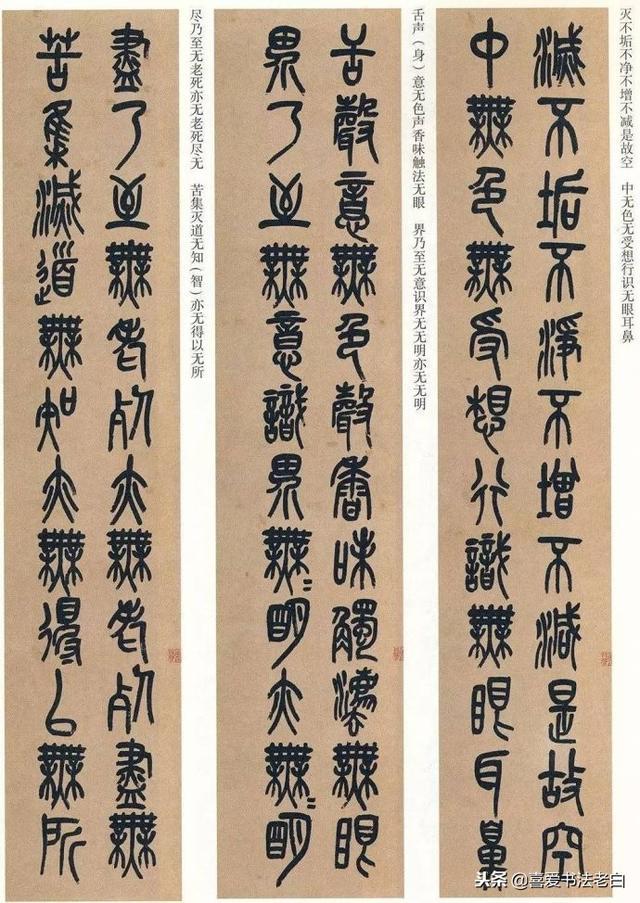 灭不垢不净不增不减是故空 中无色无受想行识无眼耳鼻
滅不垢不淨不增不減是故空
中無色無受想行識無眼耳鼻
舌声（身）意无色声香味触法无眼 界乃至无意识界无无明亦无无明
舌聲意無色聲香味觸灋無眼
界乃至無意識界無〻明亦無〻明
尽乃至无老死亦无老死尽无 苦集灭道无知（智）亦无得以无所
盡乃至無老死亦無老死盡無
苦集滅道無知亦無得以無所
头条 @喜爱书法老白